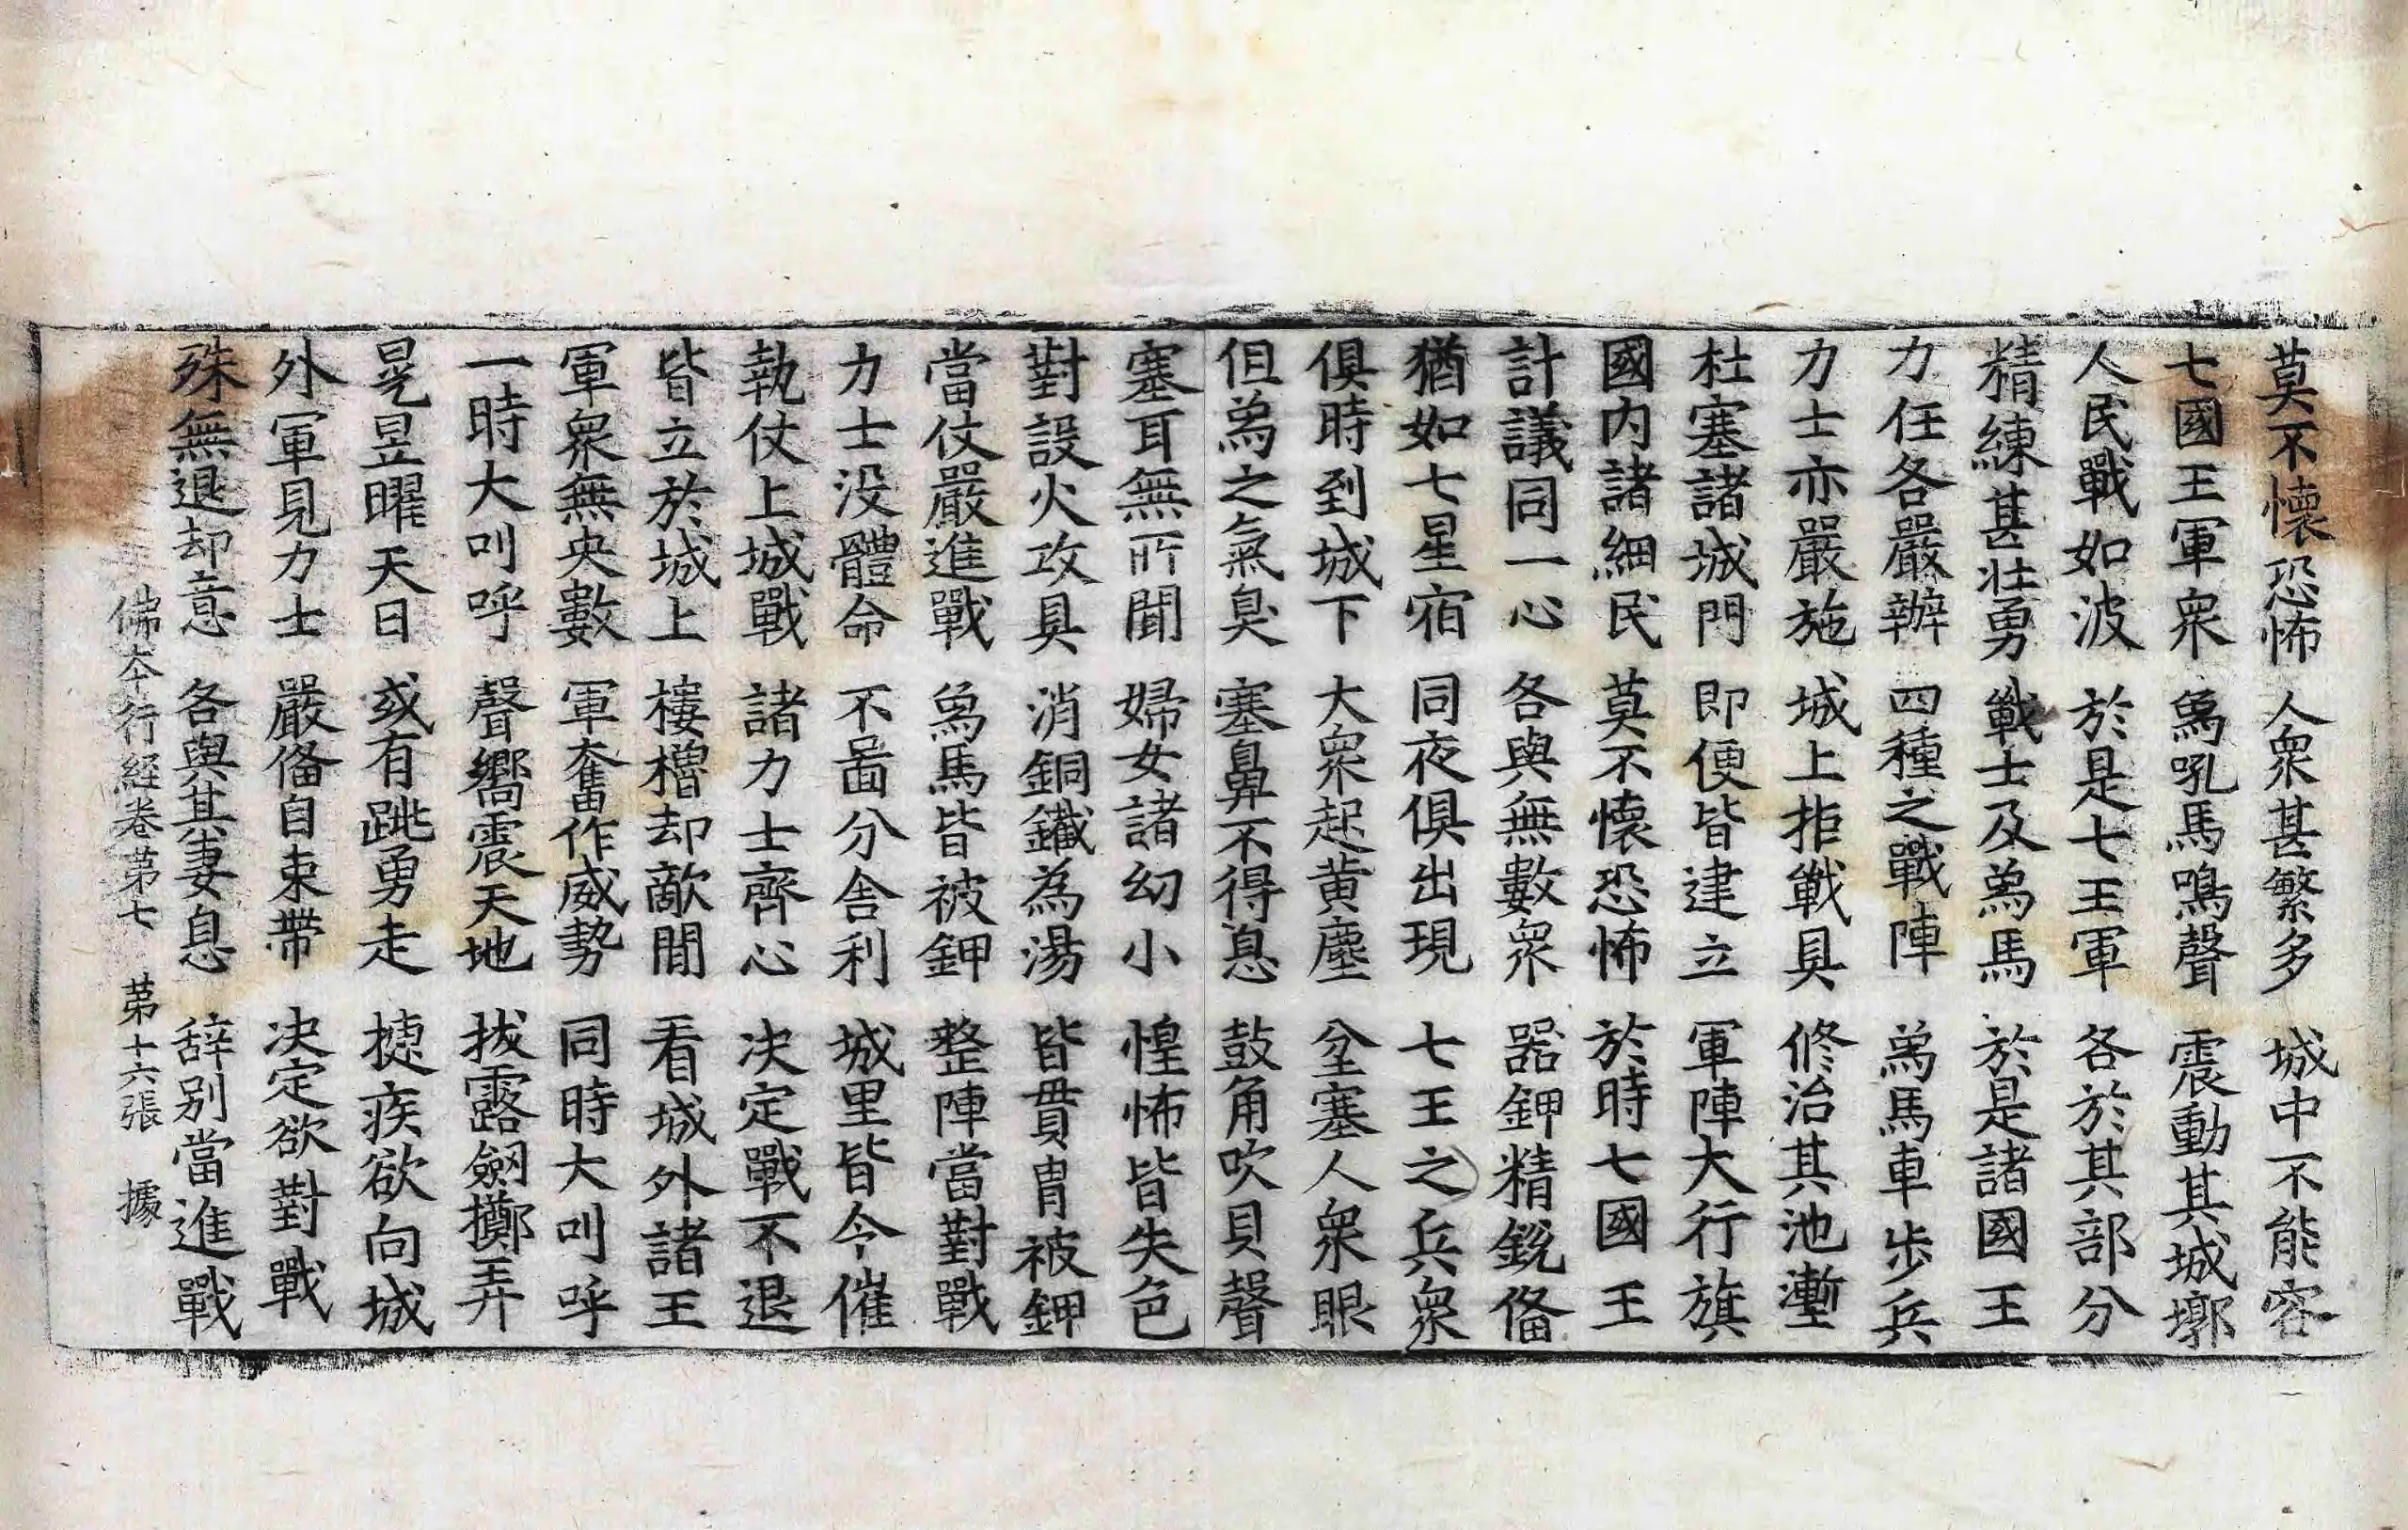 莫不懷恐怖 人衆甚繁多 城中不能容
七國王軍衆 鳥吼馬鳴聲 震動其城墎
人民戰如波 於是七王軍 各於其部分
精練甚壯勇 戰士及為馬 於是諸國王
力任各嚴辦 四種之戰陣 為馬車步兵
力士亦嚴施 城上拒戰具 修治其池壍
杜塞諸城門 即便皆建立 軍陣大行旗
國内諸細民 莫不懷恐怖 於時七國王
計議同一心 各與無數衆 器鉀精銳俻
猶如七星宿 同夜俱出現 七王之兵衆
俱時到城下 大衆起黄塵 坌塞人衆眼
但為之氣臭 塞鼻不得息 鼓角吹貝聲
塞耳無所聞 婦女諸幼小 惶怖皆失色
對設火攻具 消銅鐵為湯 皆貫胄被鉀
當仗嚴進戰 鳥馬皆被鉀 整陣當對戰
力士没體命 不啚分舍利 城里皆令催
執仗上城戰 諸力士齊心 决定戰不退
皆立於城上 樓櫓却敵間 看城外諸王
軍衆無央數 軍奮作威勢 同時大叫呼
一時大叫呼 聲嚮震天地 拔露劒擲弄
晃昱曜天日 或有跳勇走 揵疾欲向城
外軍見力士 嚴俻自束帶 决定欲對戰
殊無退却意 各與其妻息 辝別當進戰
佛本行経卷第七 第十六張 據